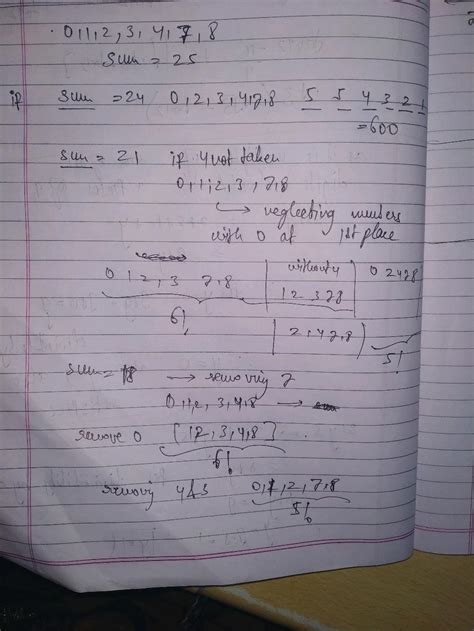 0,1,2,3,4,7,8
sum = 25
if sum = 24 0,2,3,4,7,8 5 5 4 3 2 1
= 600
sum = 21 if 4 not taken
0,1,2,3,7,8
→ neglecting numbers
with 0 at 1st place
0 1 2,3 7,8 | without 4 | 0 2 4 7 8
6! 1 2 3 7 8
2,4,7,8 5!
sum = 18 → removing 7
0,1,2,3,4,8 →
remove 0 [12,3,4,8]
6!
removing 4 & 3 0,1,2,7,8
5!